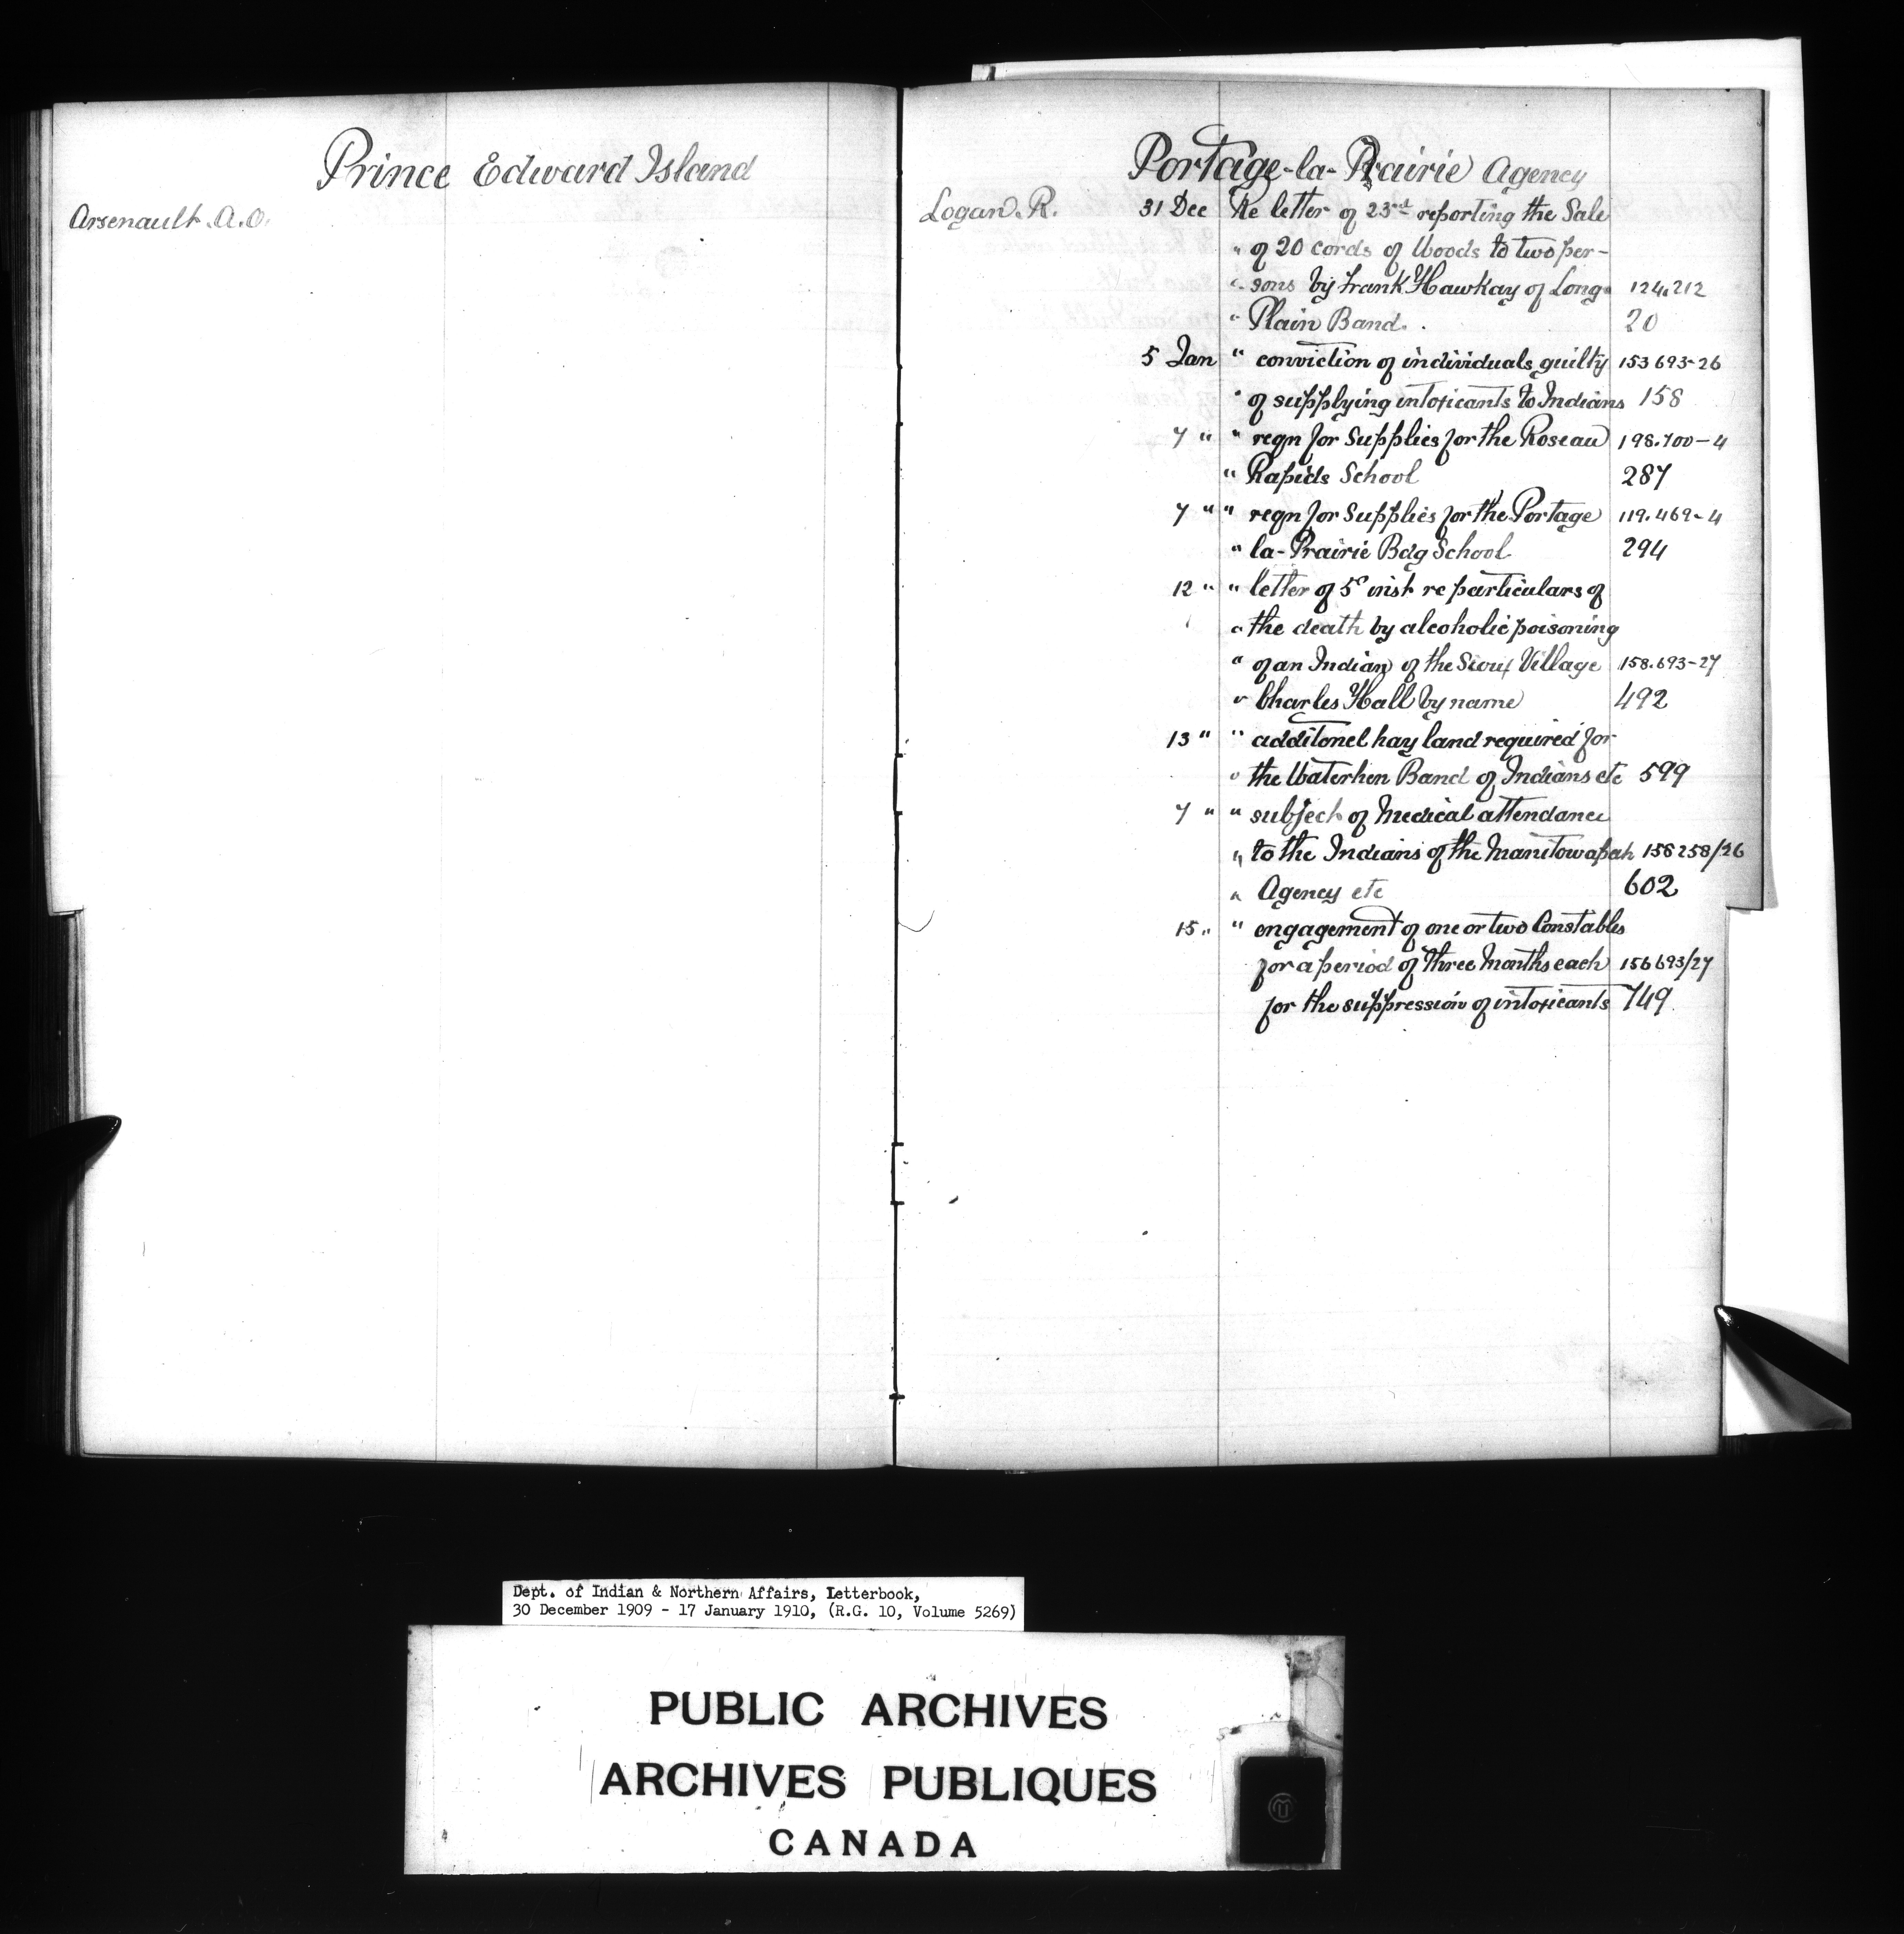 Prince Edward Island
Arsenault. A. O.
Portage-la-Prairie Agency
Logan. R. 31 Dec Re letter of 23rd reporting the Sale
" of 20 cords of Woods to two per-
" sons by Frank Hawkay of Long 124.212
" Plain Band. 20
5 Jan " conviction of individuals guilty 153693-26
" of supplying intoxicants to Indians 158
7 " " reqn for Supplies for the Roseau 198.700-4
" Rapids School 287
7 " " reqn for Supplies for the Portage 119.469-4
" la-Prairie Bdg School 294
12 " " letter of 5th inst re particulars of
" the death by alcoholic poisoning
" of an Indian of the Sioux Village 158.693-27
" Charles Hall by name 492
13 " " additonel hay land required for
" the Waterhen Band of Indians etc 599
7 " " subject of Medical attendance
" to the Indians of the Manitowapah 158258/26
" Agency etc 602
15 " " engagement of one or two Constables
for a period of three Months each 156693/27
for the suppression of intoxicants 749
Dept. of Indian & Northern Affairs, Letterbook,
30 December 1909 - 17 January 1910, (R.G. 10, Volume 5269)
PUBLIC ARCHIVES
ARCHIVES PUBLIQUES
CANADA